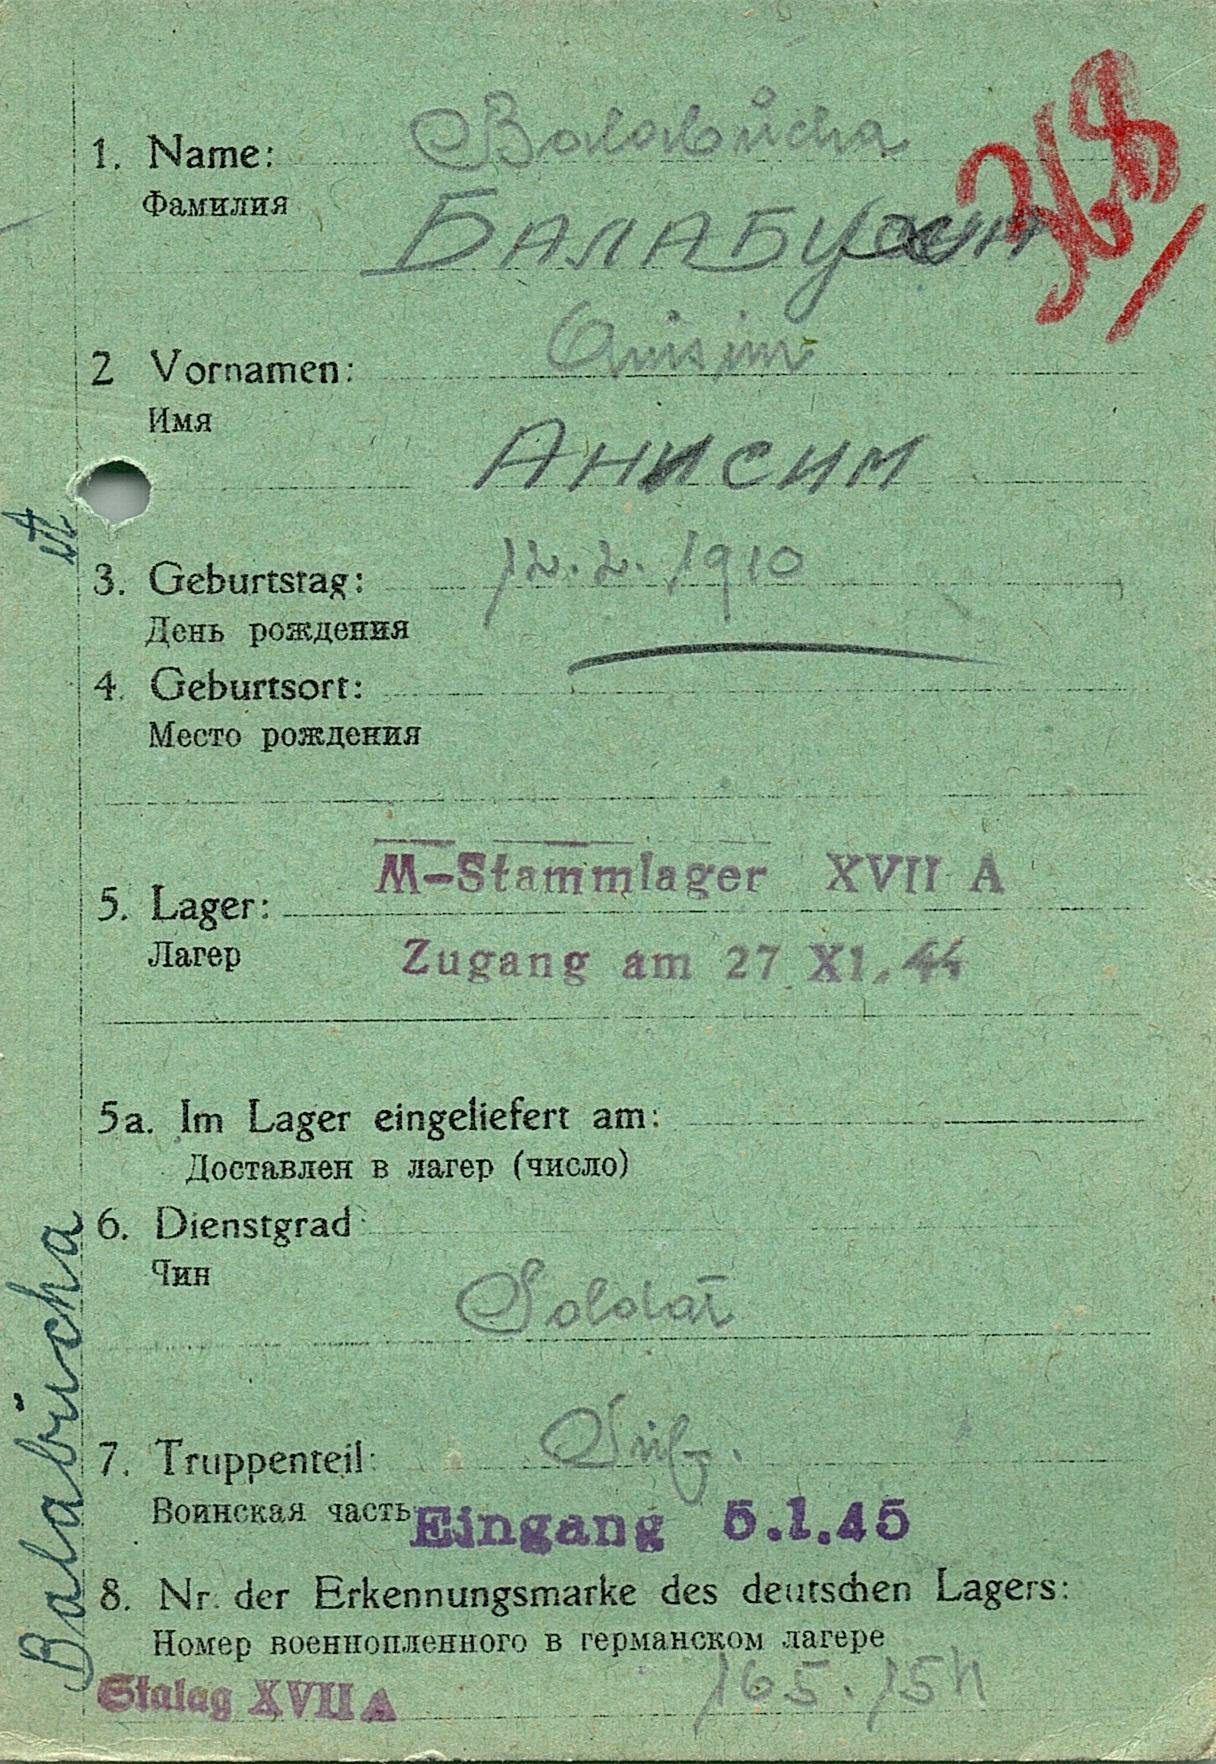 1. Name: Balabucha
Фамилия БАЛАБУ
2 Vornamen: Anisim
Имя АНИСИМ
3. Geburtstag: 12.2.1910
День рождения
4. Geburtsort:
Место рождения
M-Stammlager XVII A
5. Lager:
Лагер Zugang am 27 XI. 44
5a. Im Lager eingeliefert am:
Доставлен в лагер (число)
6. Dienstgrad:
Чин Soldat
7. Truppenteil: Inf.
Воинская часть Eingang 5.1.45
8. Nr. der Erkennungsmarke des deutschen Lagers:
Номер военнопленного в германском лагере
Stalag XVII A 165.154
Balabucha